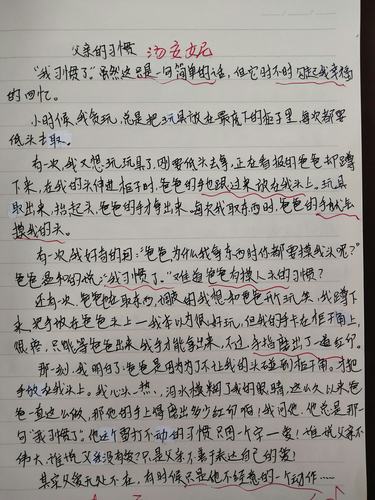 父亲的习惯 汤玄妮
“我习惯了”虽然这只是一句简单的话,但它时不时勾起我幸福
的回忆。
小时候,我贪玩,总是把玩具放在桌底下的柜子里,每次都要
低头去取。
有一次,我又想玩玩具了,刚要低头去拿,正在看报的爸爸却蹲
下来,在我的头伸进柜子时,爸爸的手也跟过来放在我头上。玩具
取出来,抬起头,爸爸的手才拿出来。每次我取东西时,爸爸的手就会
摸我的头。
有一次,我好奇的问:“爸爸,为什么我拿东西时你都要摸我头呢?”
爸爸温和的说:“我习惯了。”难道爸爸有摸人头的习惯?
还有一次,爸爸也取东西,调皮的我想和爸爸开玩笑,我蹲下
来,把手放在爸爸头上—我本以为很好玩,但我的手卡在柜子角上,
很疼,只能等爸爸出来,我手才能拿出来,不过,手指磨出了一道红印。
那一刻,我明白了:爸爸是因为为了不让我的头碰到柜子角,才把
手放在我头上。我心头一热,泪水模糊了我的眼睛,这么久以来爸
爸一直这么做,那他的手上得磨出多少红印啊!我问他,他总是那
句“我习惯了”。他这个雷打不动的习惯只因一个字—爱!谁说父亲不
伟大,谁说父爱没有爱?只是父亲不善于表达自己的爱!
其实父爱无处不在,有时候只是他不经意的一个动作……